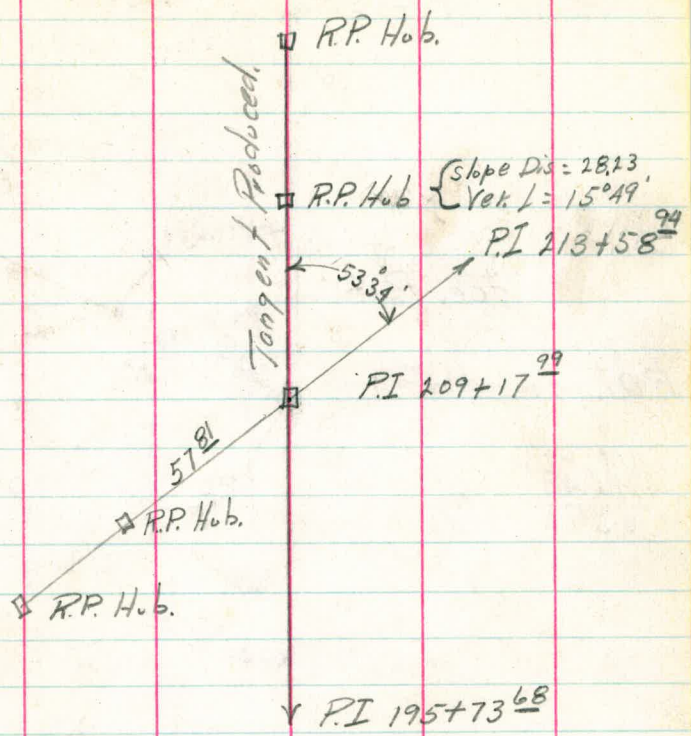 R.P. Hub.
Tangent Produced.
R.P. Hub { slope Dis = 28.23
Ver. L = 15°49'
P.I 213+58 94
53°34'
P.I 209+17 99
57 81
R.P. Hub.
R.P. Hub.
P.I 195+73 68